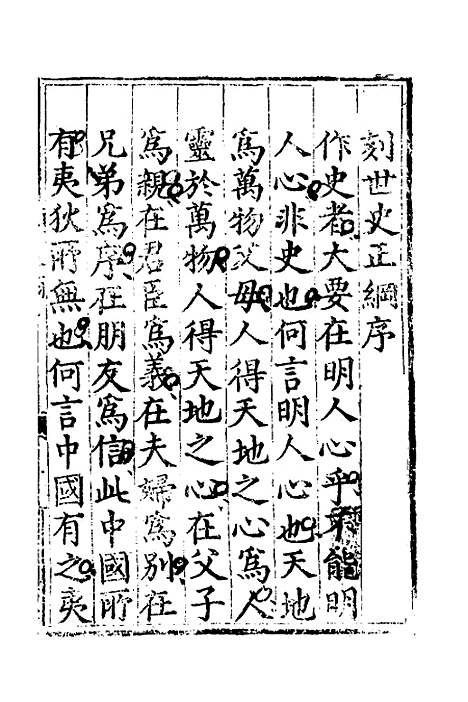 刻世史正綱序
作史者大要在明人心乎不能明
人心非史也何言明人心也天地
爲萬物父母人得天地之心爲人
靈於萬物人得天地之心在父子
爲親在君臣爲義在夫婦爲別在
兄弟爲序在朋友爲信此中國所
有夷狄所無也何言中國有之夷